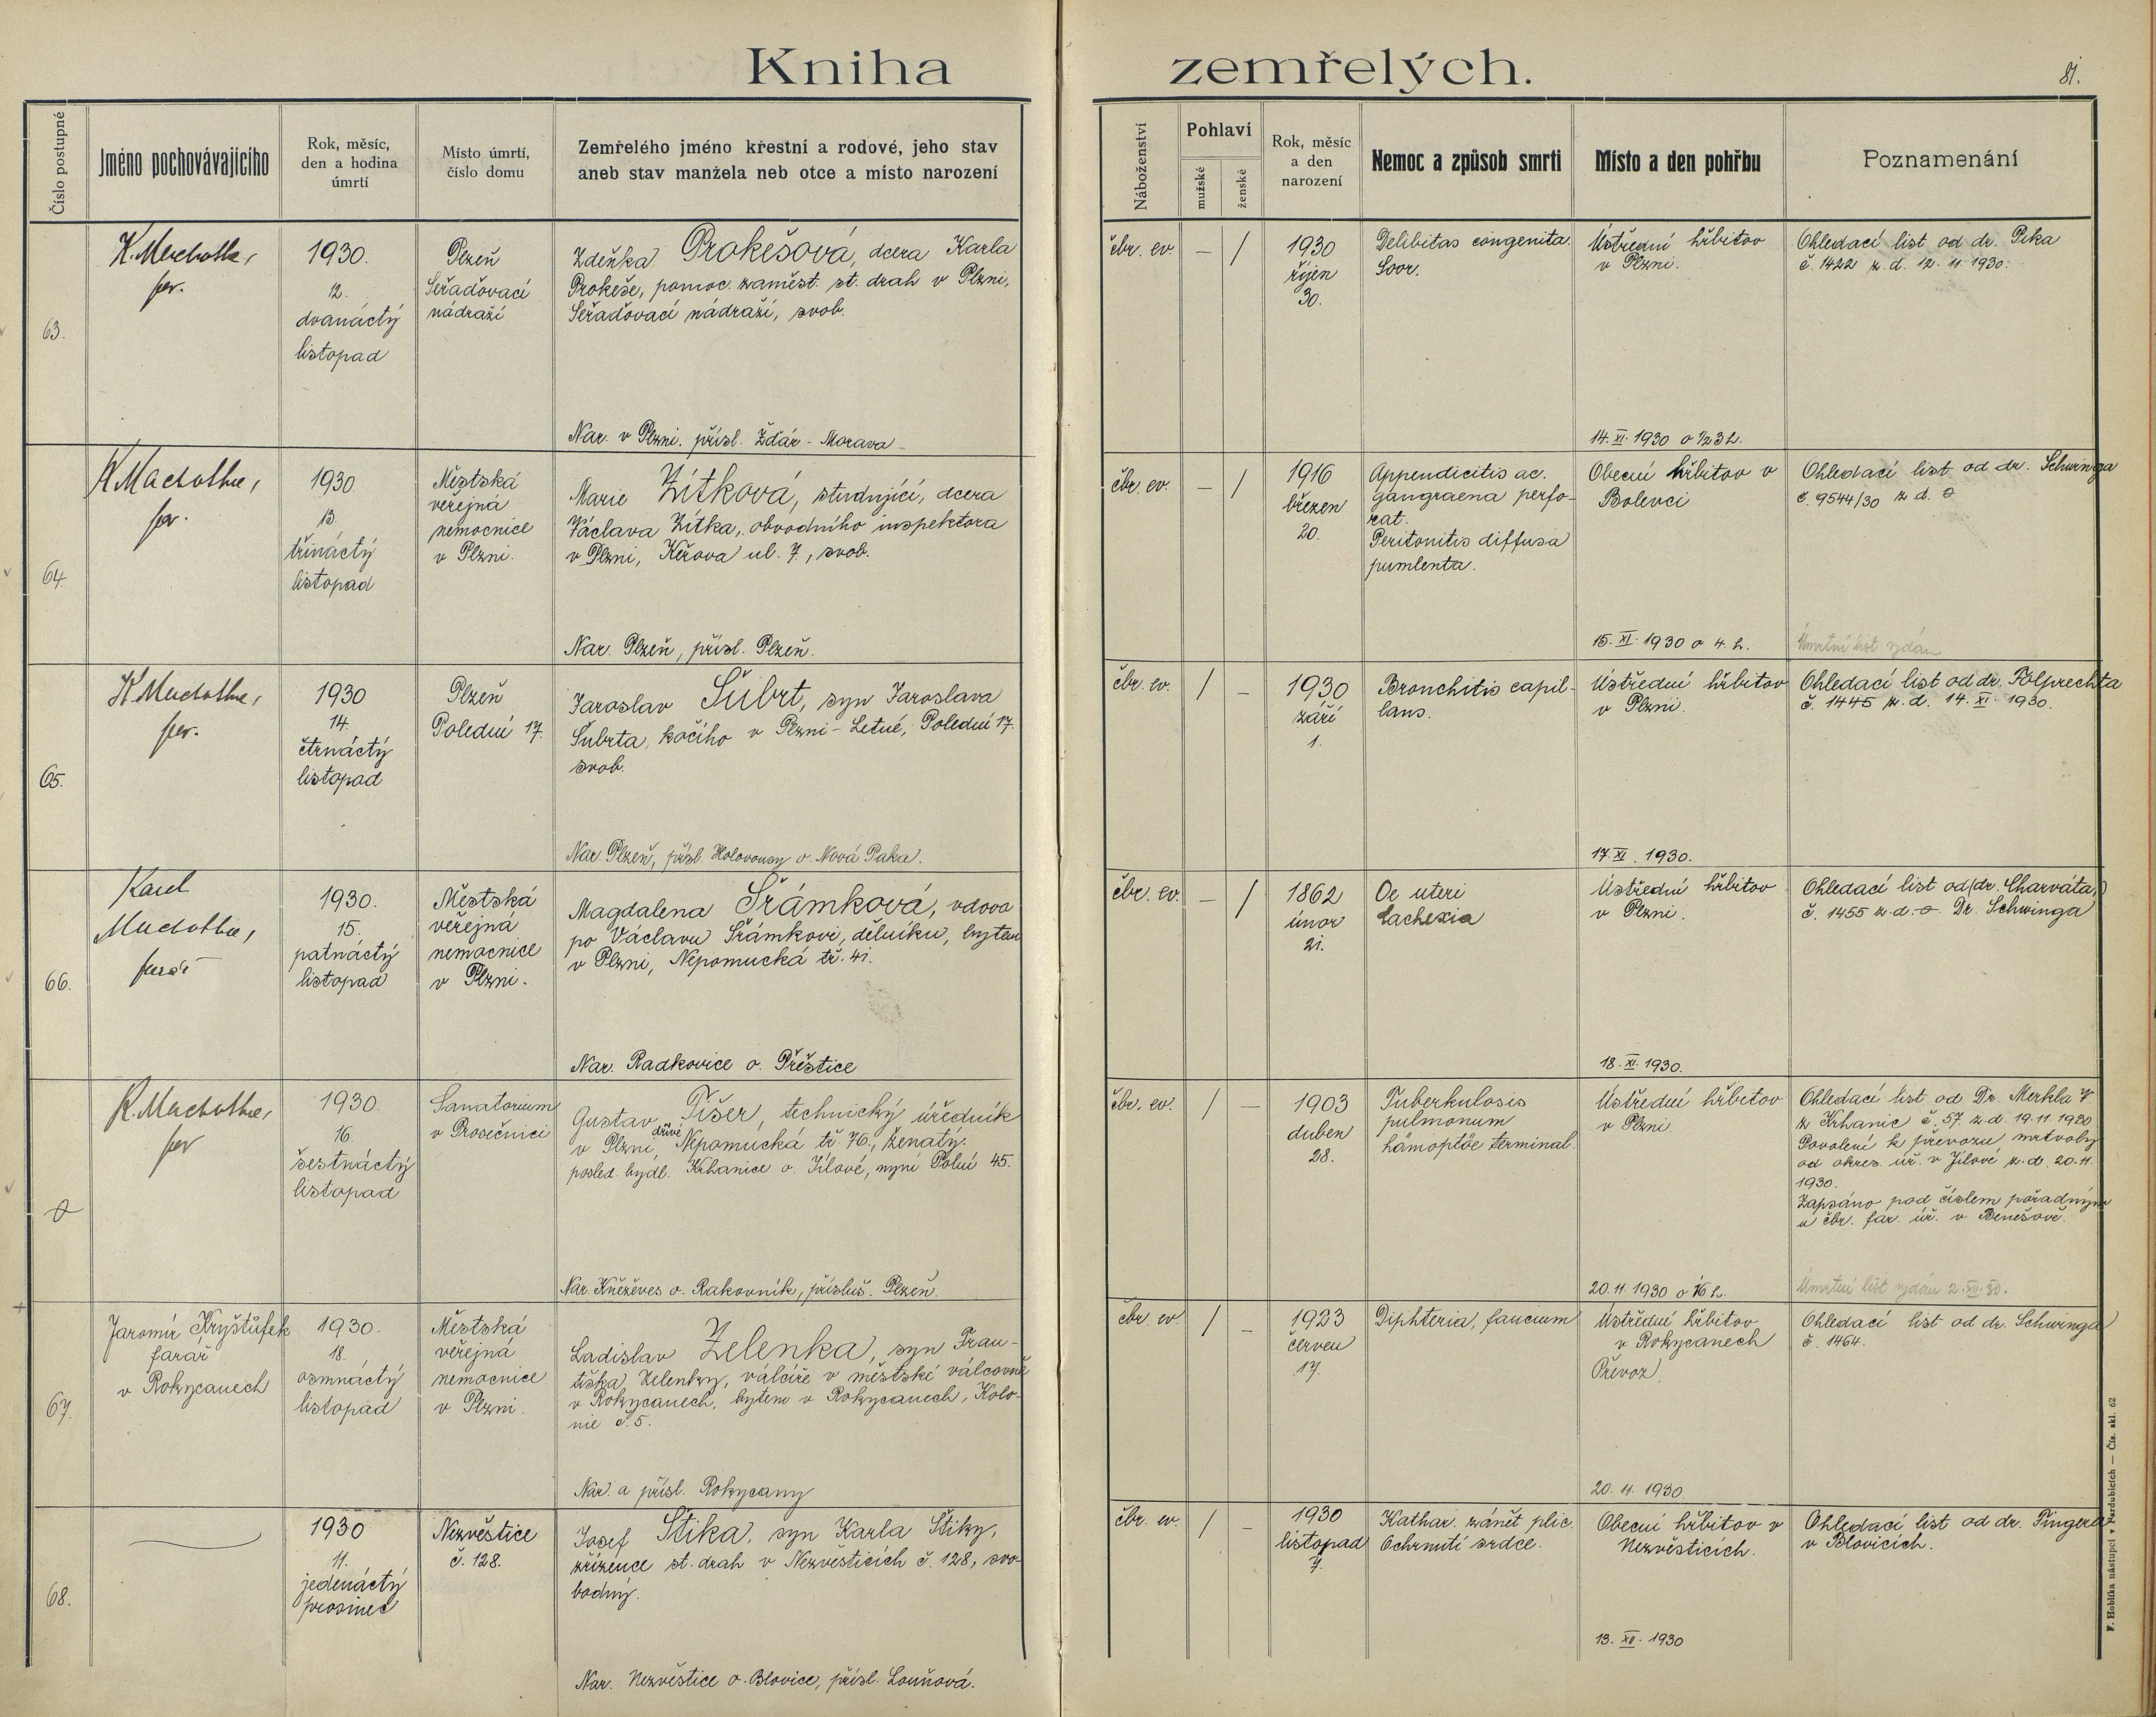 Kniha zemřelých.
81.
Číslo postupné
Jméno pochovávajícího
Rok, měsíc,
den a hodina
úmrtí
Místo úmrtí,
číslo domu
Zemřelého jméno křestní a rodové, jeho stav
aneb stav manžela neb otce a místo narození
Náboženství
Pohlaví
mužské
ženské
Rok, měsíc
a den
narození
Nemoc a způsob smrti
Místo a den pohřbu
Poznamenání
63.
far.
1930.
12.
dvanáctý
listopad
Plzeň
Seřaďovací
nádraží
Zdeňka Prokešová, dcera Karla
Prokeše, pomoc. zaměst. st. drah v Plzni,
Seřaďovací nádraží, svob.
Nar. v Plzni. přísl. Žďár - Morava
čbr. ev.
— /
1930
říjen
30.
Debilitas congenita.
Soor.
Ústřední hřbitov
v Plzni.
14. XI. 1930 o 1/2 3 h.
Ohledací list od dr. Pika
č. 1422 z. d. 12. 11 1930.
64.
far.
1930
13.
třináctý
listopad
Městská
veřejná
nemocnice
v Plzni.
Marie Zítková, studující, dcera
Václava Zítka, obvodního inspektora
v Plzni, Keřova ul. 7, svob.
Nar. Plzeň, přísl. Plzeň.
čbr. ev.
— /
1916
březen
20.
Appendicitis ac.
gangraena perfo-
rat.
Peritonitis diffusa
purulenta.
Obecní hřbitov v
Bolevci
15. XI. 1930 o 4. h.
Ohledací list od dr. Schwinga
č 9544/30 z d.
Úmrtní list vydán
65.
far.
1930
14.
čtrnáctý
listopad
Plzeň
Polední 17.
Jaroslav Šubrt, syn Jaroslava
Šubrta, kočího v Plzni - Letné, Polední 17.
svob.
Nar. Plzeň, přísl. Holovousy o. Nová Paka.
čbr. ev.
/ –
1930
září
1.
Bronchitis capil-
lans.
Ústřední hřbitov
v Plzni.
17. XI. 1930.
Ohledací list od dr. Polprechta
č. 1445 z. d. 14. XI. 1930.
66.
Karel
farář
1930.
15.
patnáctý
listopad
Městská
veřejná
nemocnice
v Plzni.
Magdalena Šrámková, vdova
po Václavu Šrámkovi, dělníku, bytem
v Plzni, Nepomucká tř. 41.
Nar. Radkovice o. Přeštice
čbr. ev.
— /
1862
únor
21.
Oe uteri
Cachexia
Ústřední hřbitov
v Plzni.
18. XI. 1930.
Ohledací list od (dr. Charváta,)
č. 1455 z. d. Dr. Schwinga
far
1930.
16.
šestnáctý
listopad
Sanatorium
v Prosečnici
Gustav Tišer, technický úředník
v Plzni, dříve Nepomucká tř. 76., ženatý.
posled. bydl. Krhanice o. Jílové, nyní Polní 45.
Nar. Kněževes o. Rakovník, přísluš. Plzeň.
čbr. ev.
/ —
1903
duben
28.
Tuberkulosis
pulmonum
hämoptöe terminal.
Ústřední hřbitov
v Plzni
20. 11 1930 o 16 h.
Ohledací list od Dr. Merkla
z Krhanic č. 57. z. d. 19. 11 1930
Povolení k převozu mrtvoly
od okres. úř. v Jílové z. d. 20. 11.
1930.
Zapsáno pod číslem pořadným
u čbr. far. úř. v Benešově.
Úmrtní list vydán 2. XII. 30.
+
67.
Jaromír Kryštůfek
farář
v Rokycanech
1930.
18.
osmnáctý
listopad
Městská
veřejná
nemocnice
v Plzni
Ladislav Zelenka, syn Fran-
tiška Zelenky, válcíře v městské válcovně
v Rokycanech, bytem v Rokycanech, Kolo-
nie č. 5.
Nar. a přísl. Rokycany
čbr. ev.
/ –
1923
červen
17.
Diphteria, faucium
Ústřední hřbitov
v Rokycanech
Převoz.
20. 11. 1930
Ohledací list od dr. Schwinga
č. 1464.
68.
1930
11.
jedenáctý
prosinec
Nezvěstice
č. 128.
Josef Štika, syn Karla Štiky,
zřízence st. drah v Nezvěsticích č. 128, svo-
bodný.
Nar. Nezvěstice o. Blovice, přísl. Louňová.
čbr. ev.
/ –
1930
listopad
7.
Kathar. zánět plic.
Ochrnutí srdce.
Obecní hřbitov v
Nezvěsticích.
13. XII. 1930
Ohledací list od dr. Fingerla
v Blovicích.
F. Hoblíka nástupci v Pardubicích — Čís. skl. 62